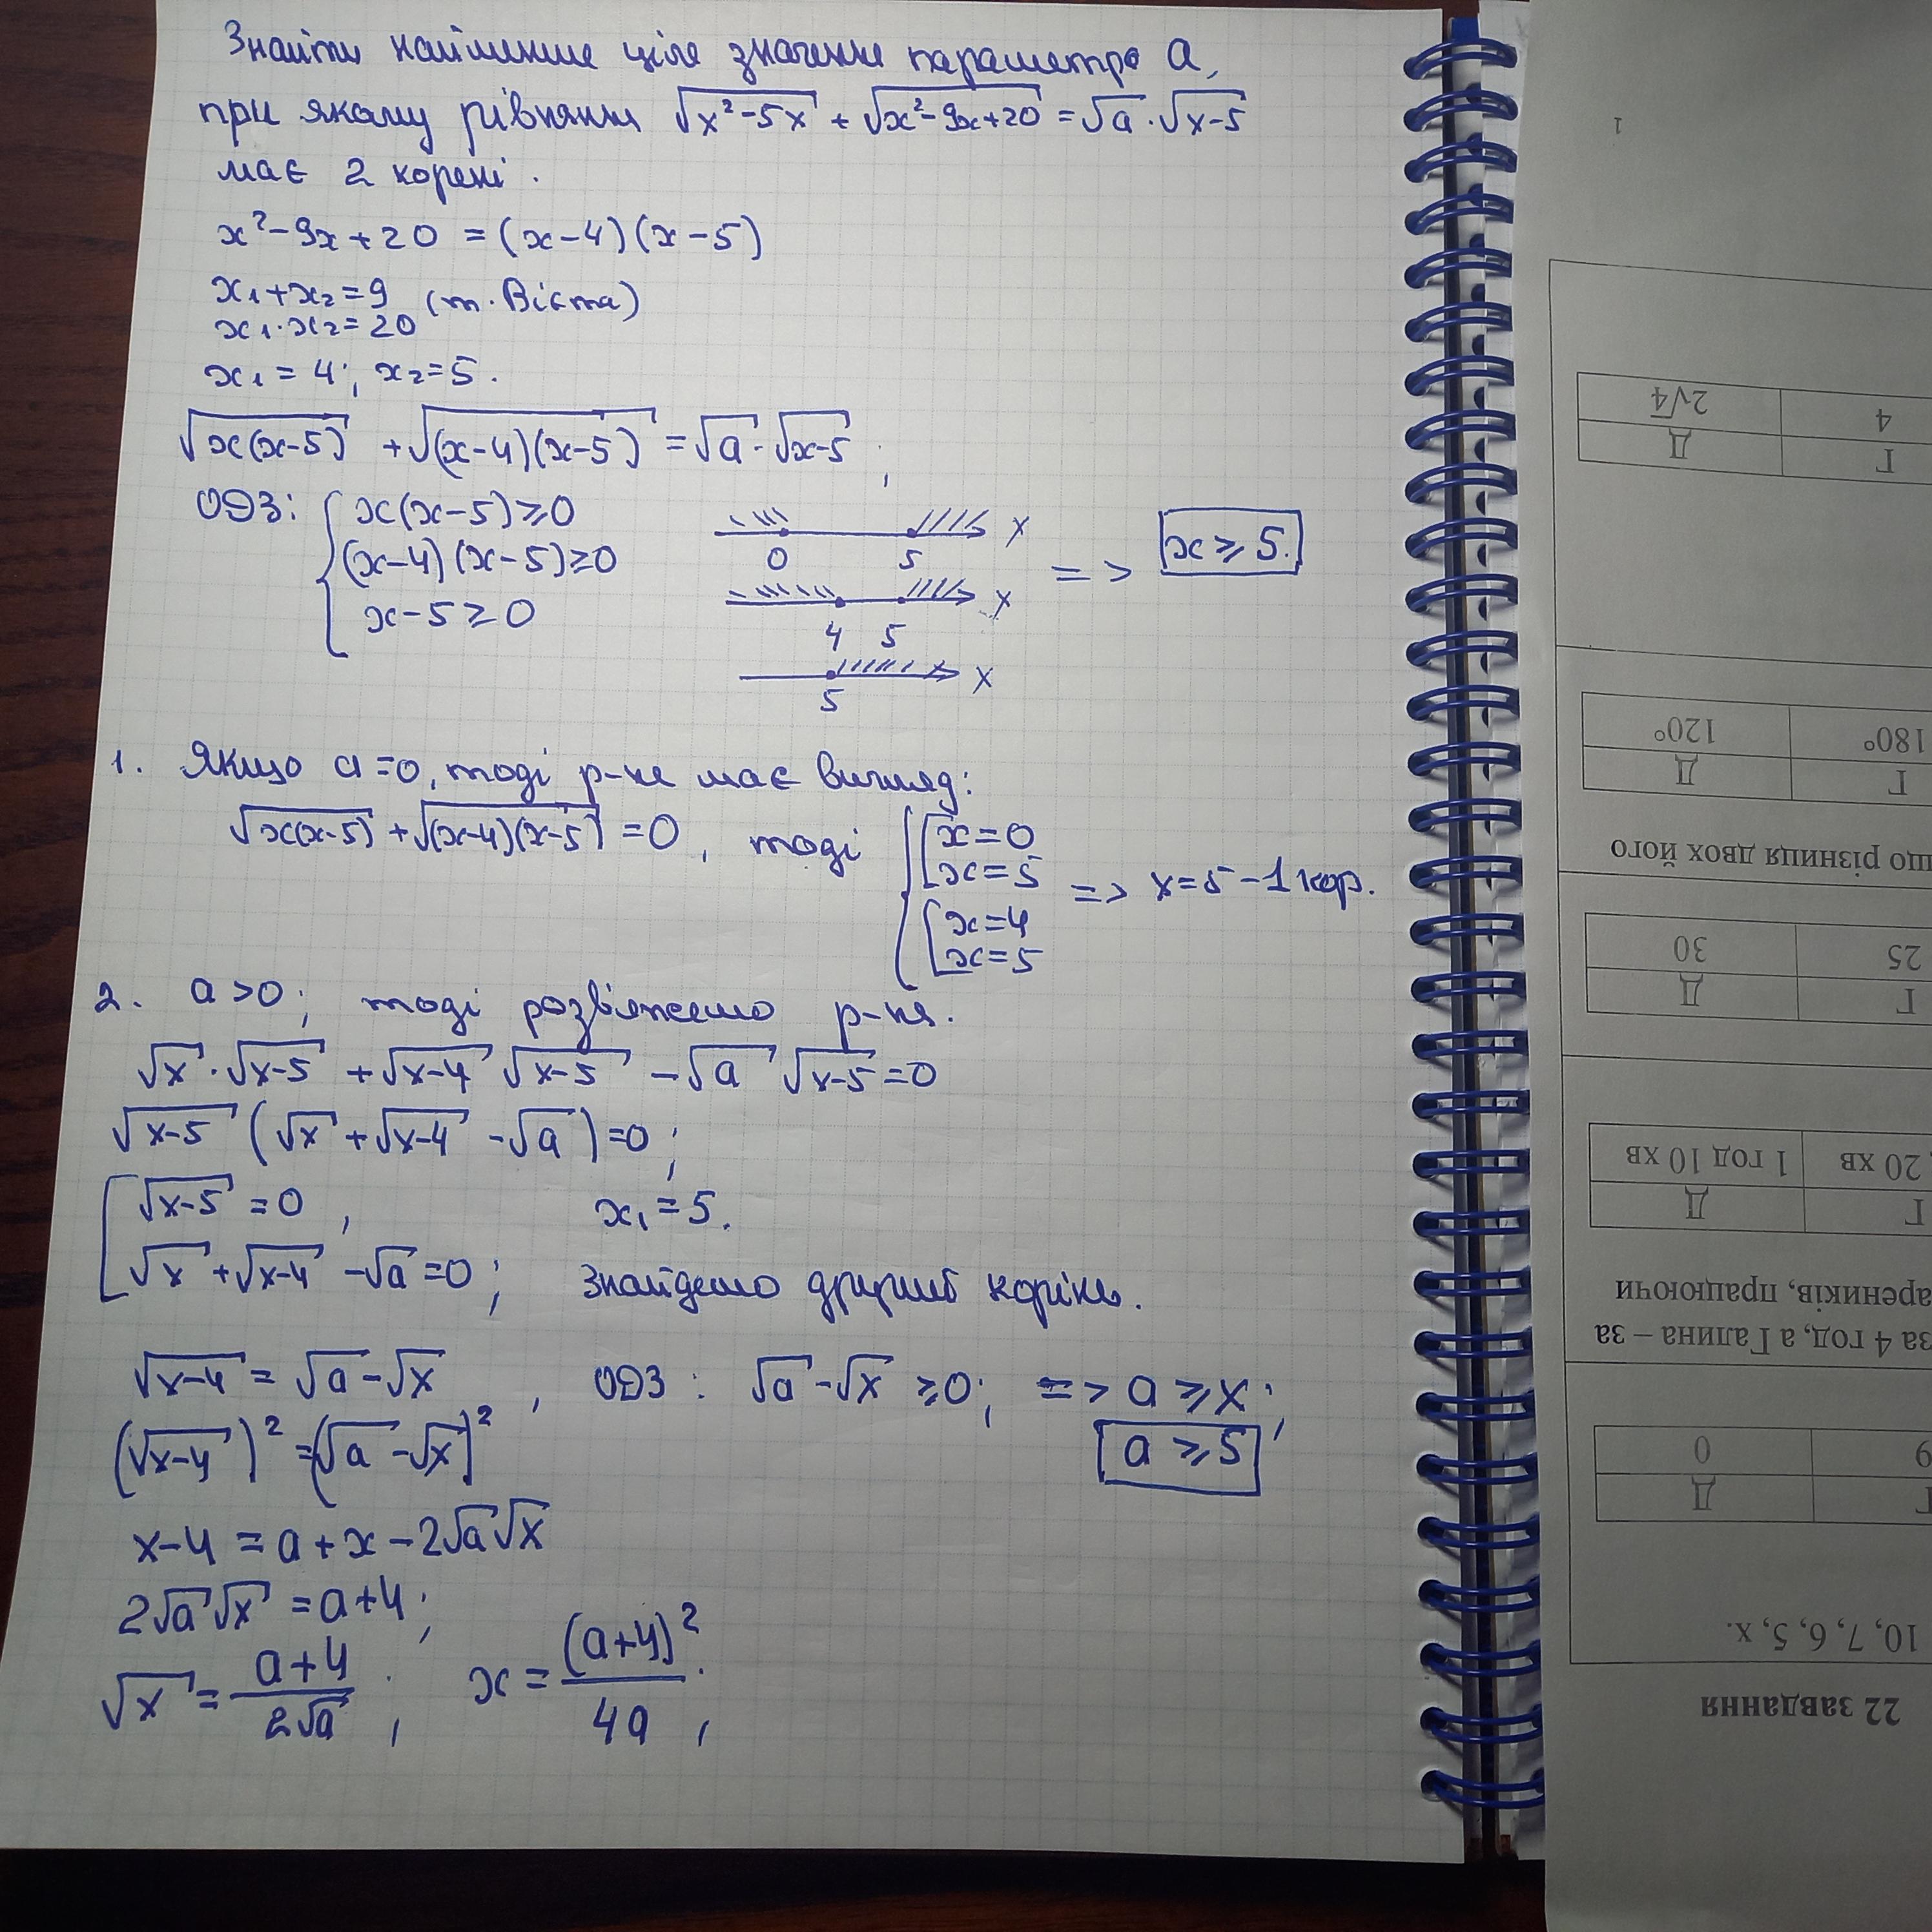 Знайти найменше ціле значення параметра a,
при якому рівняння √(x²-5x) + √(x²-9x+20) = √a · √(x-5)
має 2 корені.
x²-9x+20 = (x-4)(x-5)
x₁+x₂=9 (т. Вієта)
x₁·x₂=20
x₁=4; x₂=5.
√(x(x-5)) + √((x-4)(x-5)) = √a · √(x-5);
ОДЗ: { x(x-5)≥0
(x-4)(x-5)≥0
x-5≥0
0 5 x
4 5 x
5 x
=> x≥5.
1. Якщо a=0, тоді р-не має вигляд:
√(x(x-5)) + √((x-4)(x-5)) = 0, тоді { [ x=0
x=5
[ x=4
x=5
=> x=5 - 1 кор.
2. a>0; тоді розв'яжемо р-ня.
√x · √(x-5) + √(x-4) √(x-5) - √a √(x-5) = 0
√(x-5) (√x + √(x-4) - √a) = 0;
[ √(x-5) = 0, x₁=5.
√x + √(x-4) - √a = 0; Знайдемо другий корінь.
√(x-4) = √a - √x, ОДЗ: √a - √x ≥0; => a≥x;
(√(x-4))² = (√a - √x)² a≥5;
x-4 = a+x-2√a√x
2√a√x = a+4;
√x = (a+4)/(2√a); x = (a+4)²/(4a);
1
Г Д
4 2√4
Г Д
180° 120°
що різниця двох його
Г Д
25 30
Г Д
20 хв 1 год 10 хв
за 4 год, а Галина – за
ареників, працюючи
Г Д
9 0
10, 7, 6, 5, x.
22 завдання